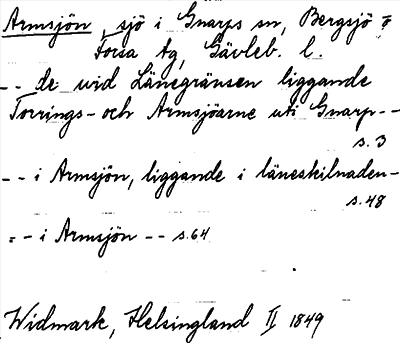 Armsjön, sjö i Gnarps sn, Bergsjö o
Forsa tg, Gävleb. l.
-- de wid Länegränsen liggande
Torrings- och Armsjöarne uti Gnarp--
s. 3
-- i Armsjön, liggande i läneskilnaden-
s. 48
-- i Armsjön -- s. 64
Widmark, Helsingland II 1849